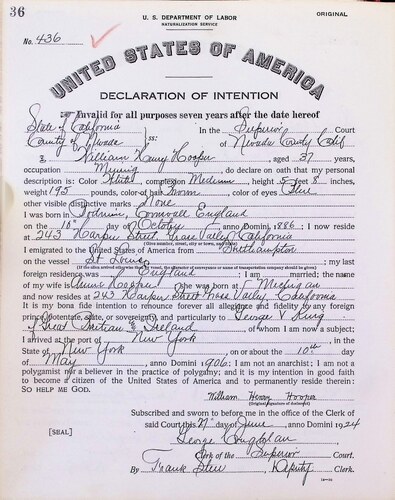 36
U. S. DEPARTMENT OF LABOR
NATURALIZATION SERVICE
ORIGINAL
No. 436
UNITED STATES OF AMERICA
DECLARATION OF INTENTION
Invalid for all purposes seven years after the date hereof
State of California
County of Nevada ss: In the Superior Court
of Nevada County Calif
I, William Henry Hooper, aged 37 years,
occupation Mining, do declare on oath that my personal
description is: Color White, complexion Medium, height 5 feet 8 inches,
weight 195 pounds, color of hair Brown, color of eyes Blue
other visible distinctive marks None
I was born in Bodmin, Cornwall England
on the 10th day of October, anno Domini 1886; I now reside
at 243 Harper Street, Grass Valley, California
(Give number, street, city or town, and State)
I emigrated to the United States of America from Southampton
on the vessel St Louis; my last
(If the alien arrived otherwise than by vessel, the character of conveyance or name of transportation company should be given)
foreign residence was England; I am married; the name
of my wife is Annie Hooper; she was born at Michigan
and now resides at 243 Harper Street Grass Valley, California
It is my bona fide intention to renounce forever all allegiance and fidelity to any foreign
prince, potentate, state, or sovereignty, and particularly to George V King
of Great Britain and Ireland, of whom I am now a subject;
I arrived at the port of New York, in the
State of New York, on or about the 10th day
of May, anno Domini 1906; I am not an anarchist; I am not a
polygamist nor a believer in the practice of polygamy; and it is my intention in good faith
to become a citizen of the United States of America and to permanently reside therein:
SO HELP ME GOD.
William Henry Hooper
(Original signature of declarant)
Subscribed and sworn to before me in the office of the Clerk of
said Court this day of June, anno Domini 1924
[SEAL]
George
Clerk of the Superior Court.
By Frank, Deputy Clerk.